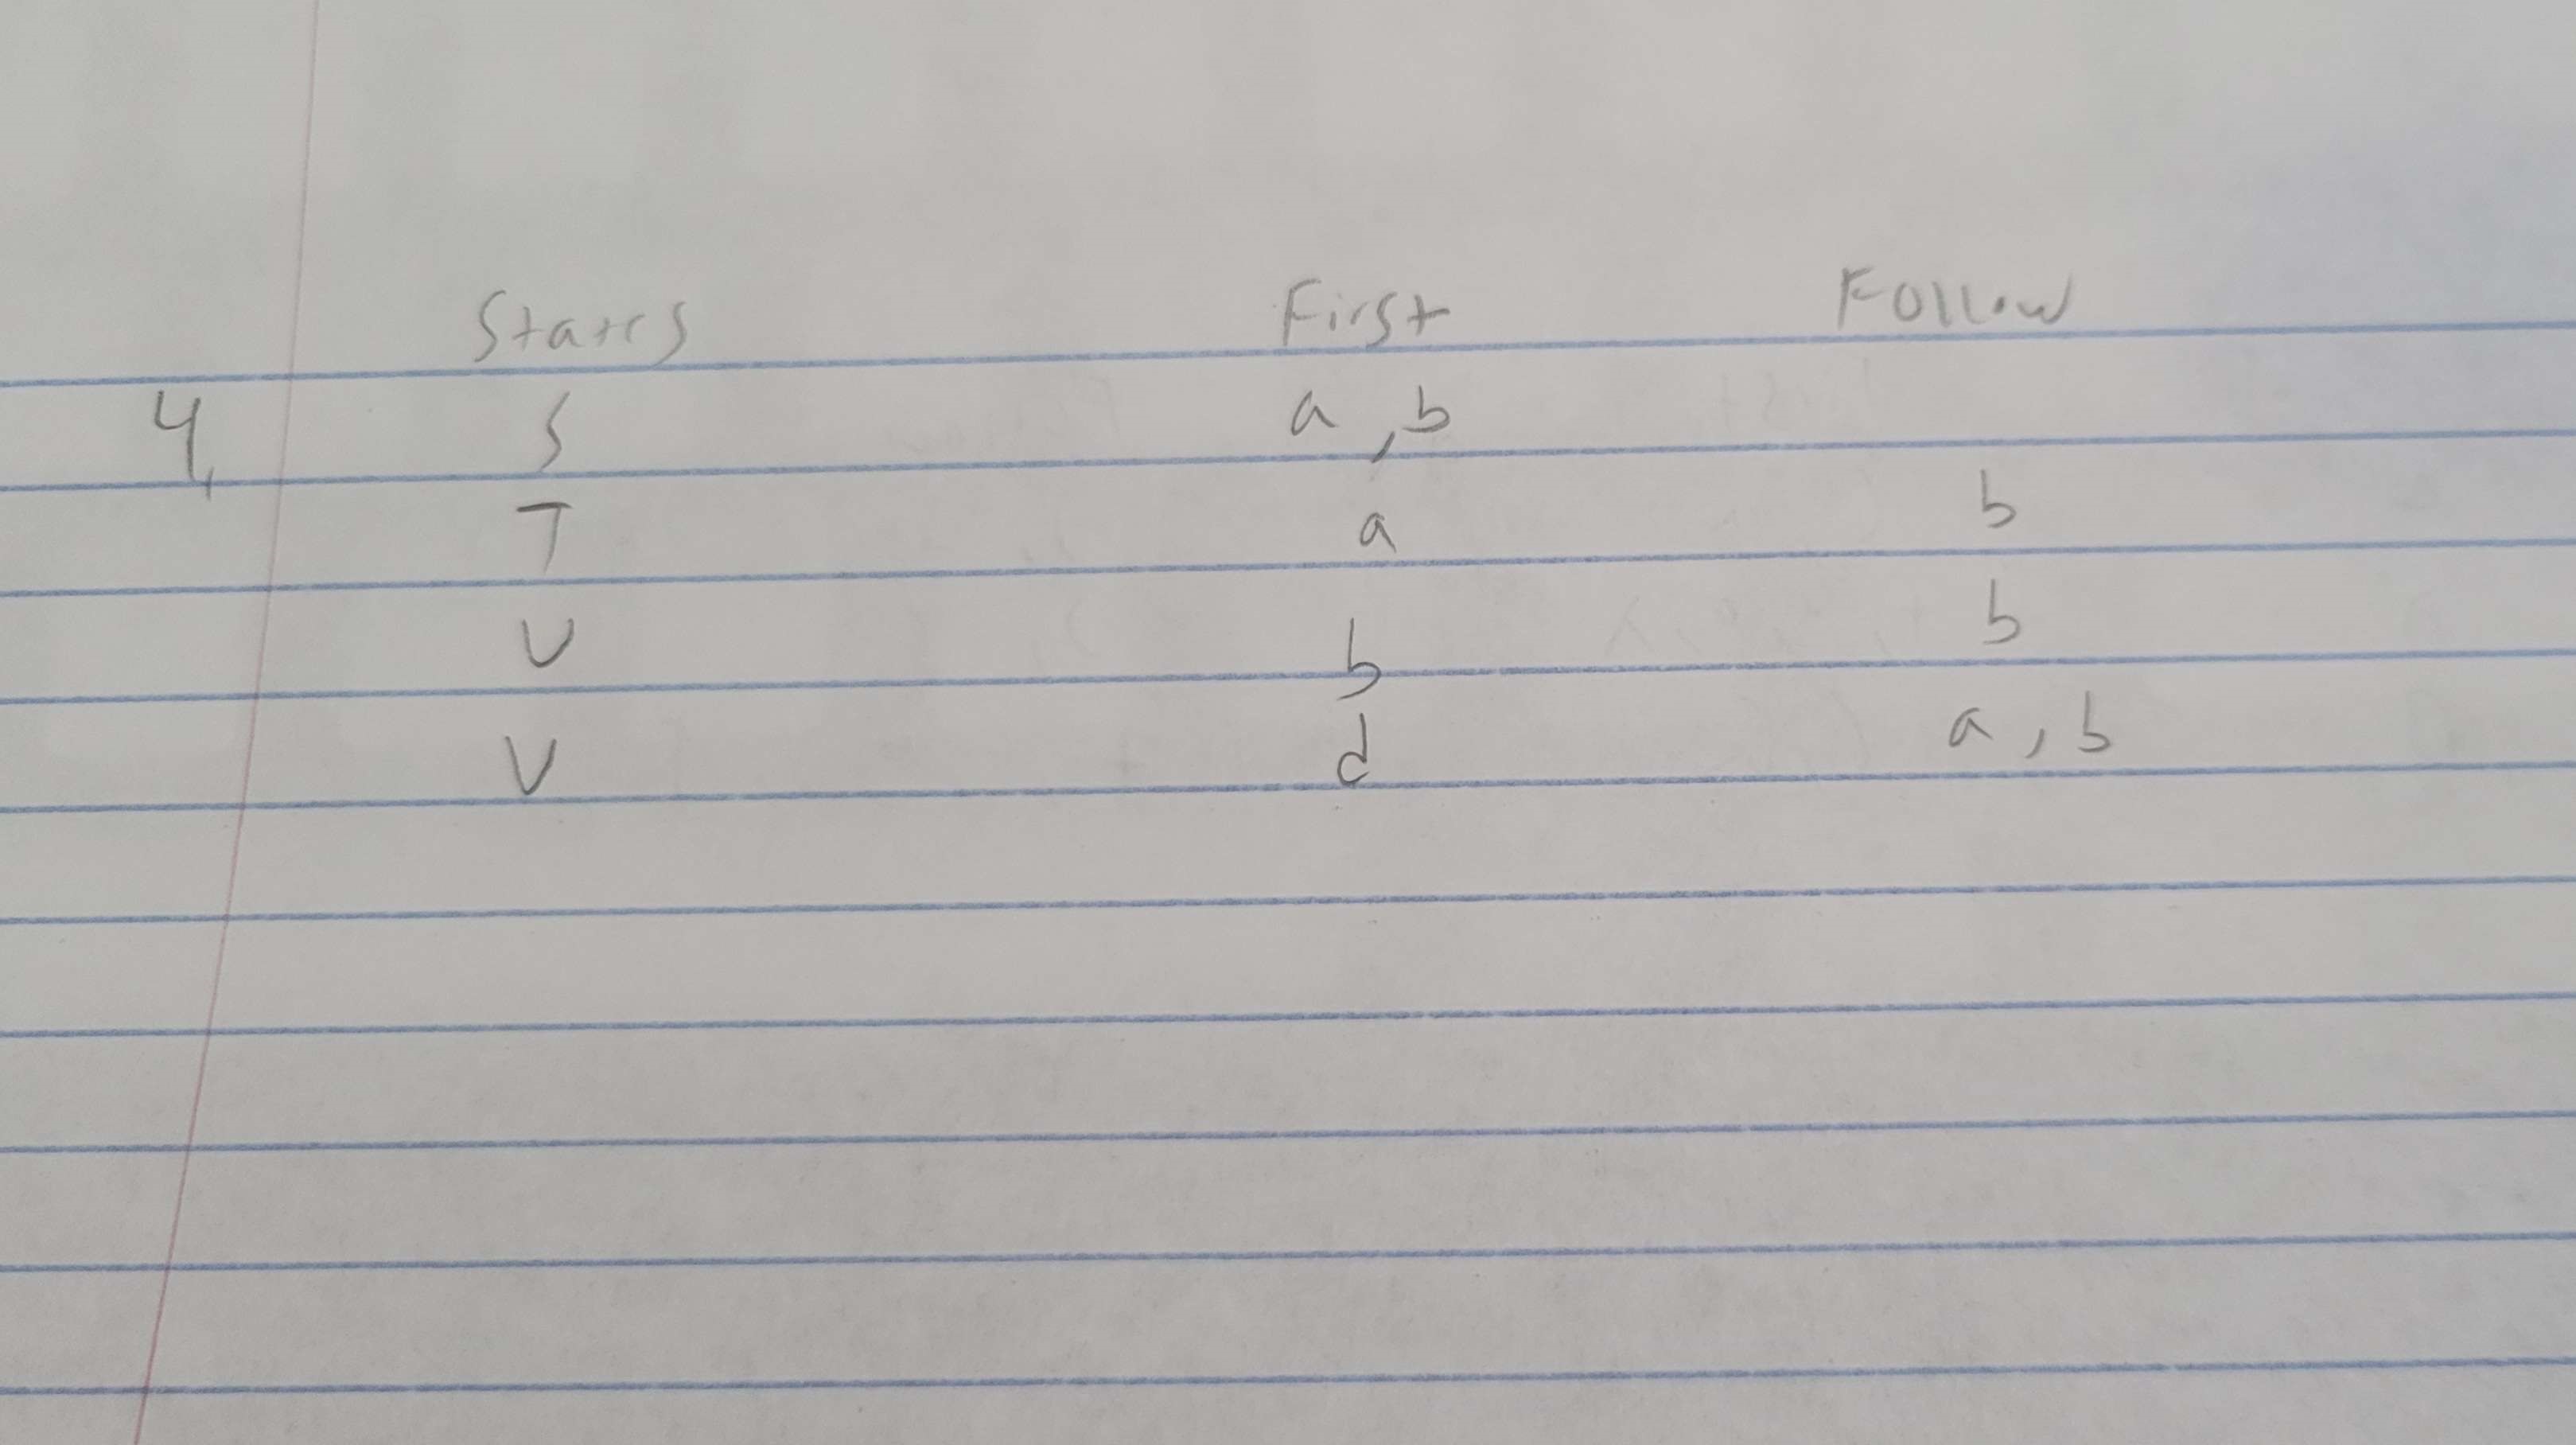 States First Follow
4. S a, b
T a b
U b b
V d a, b